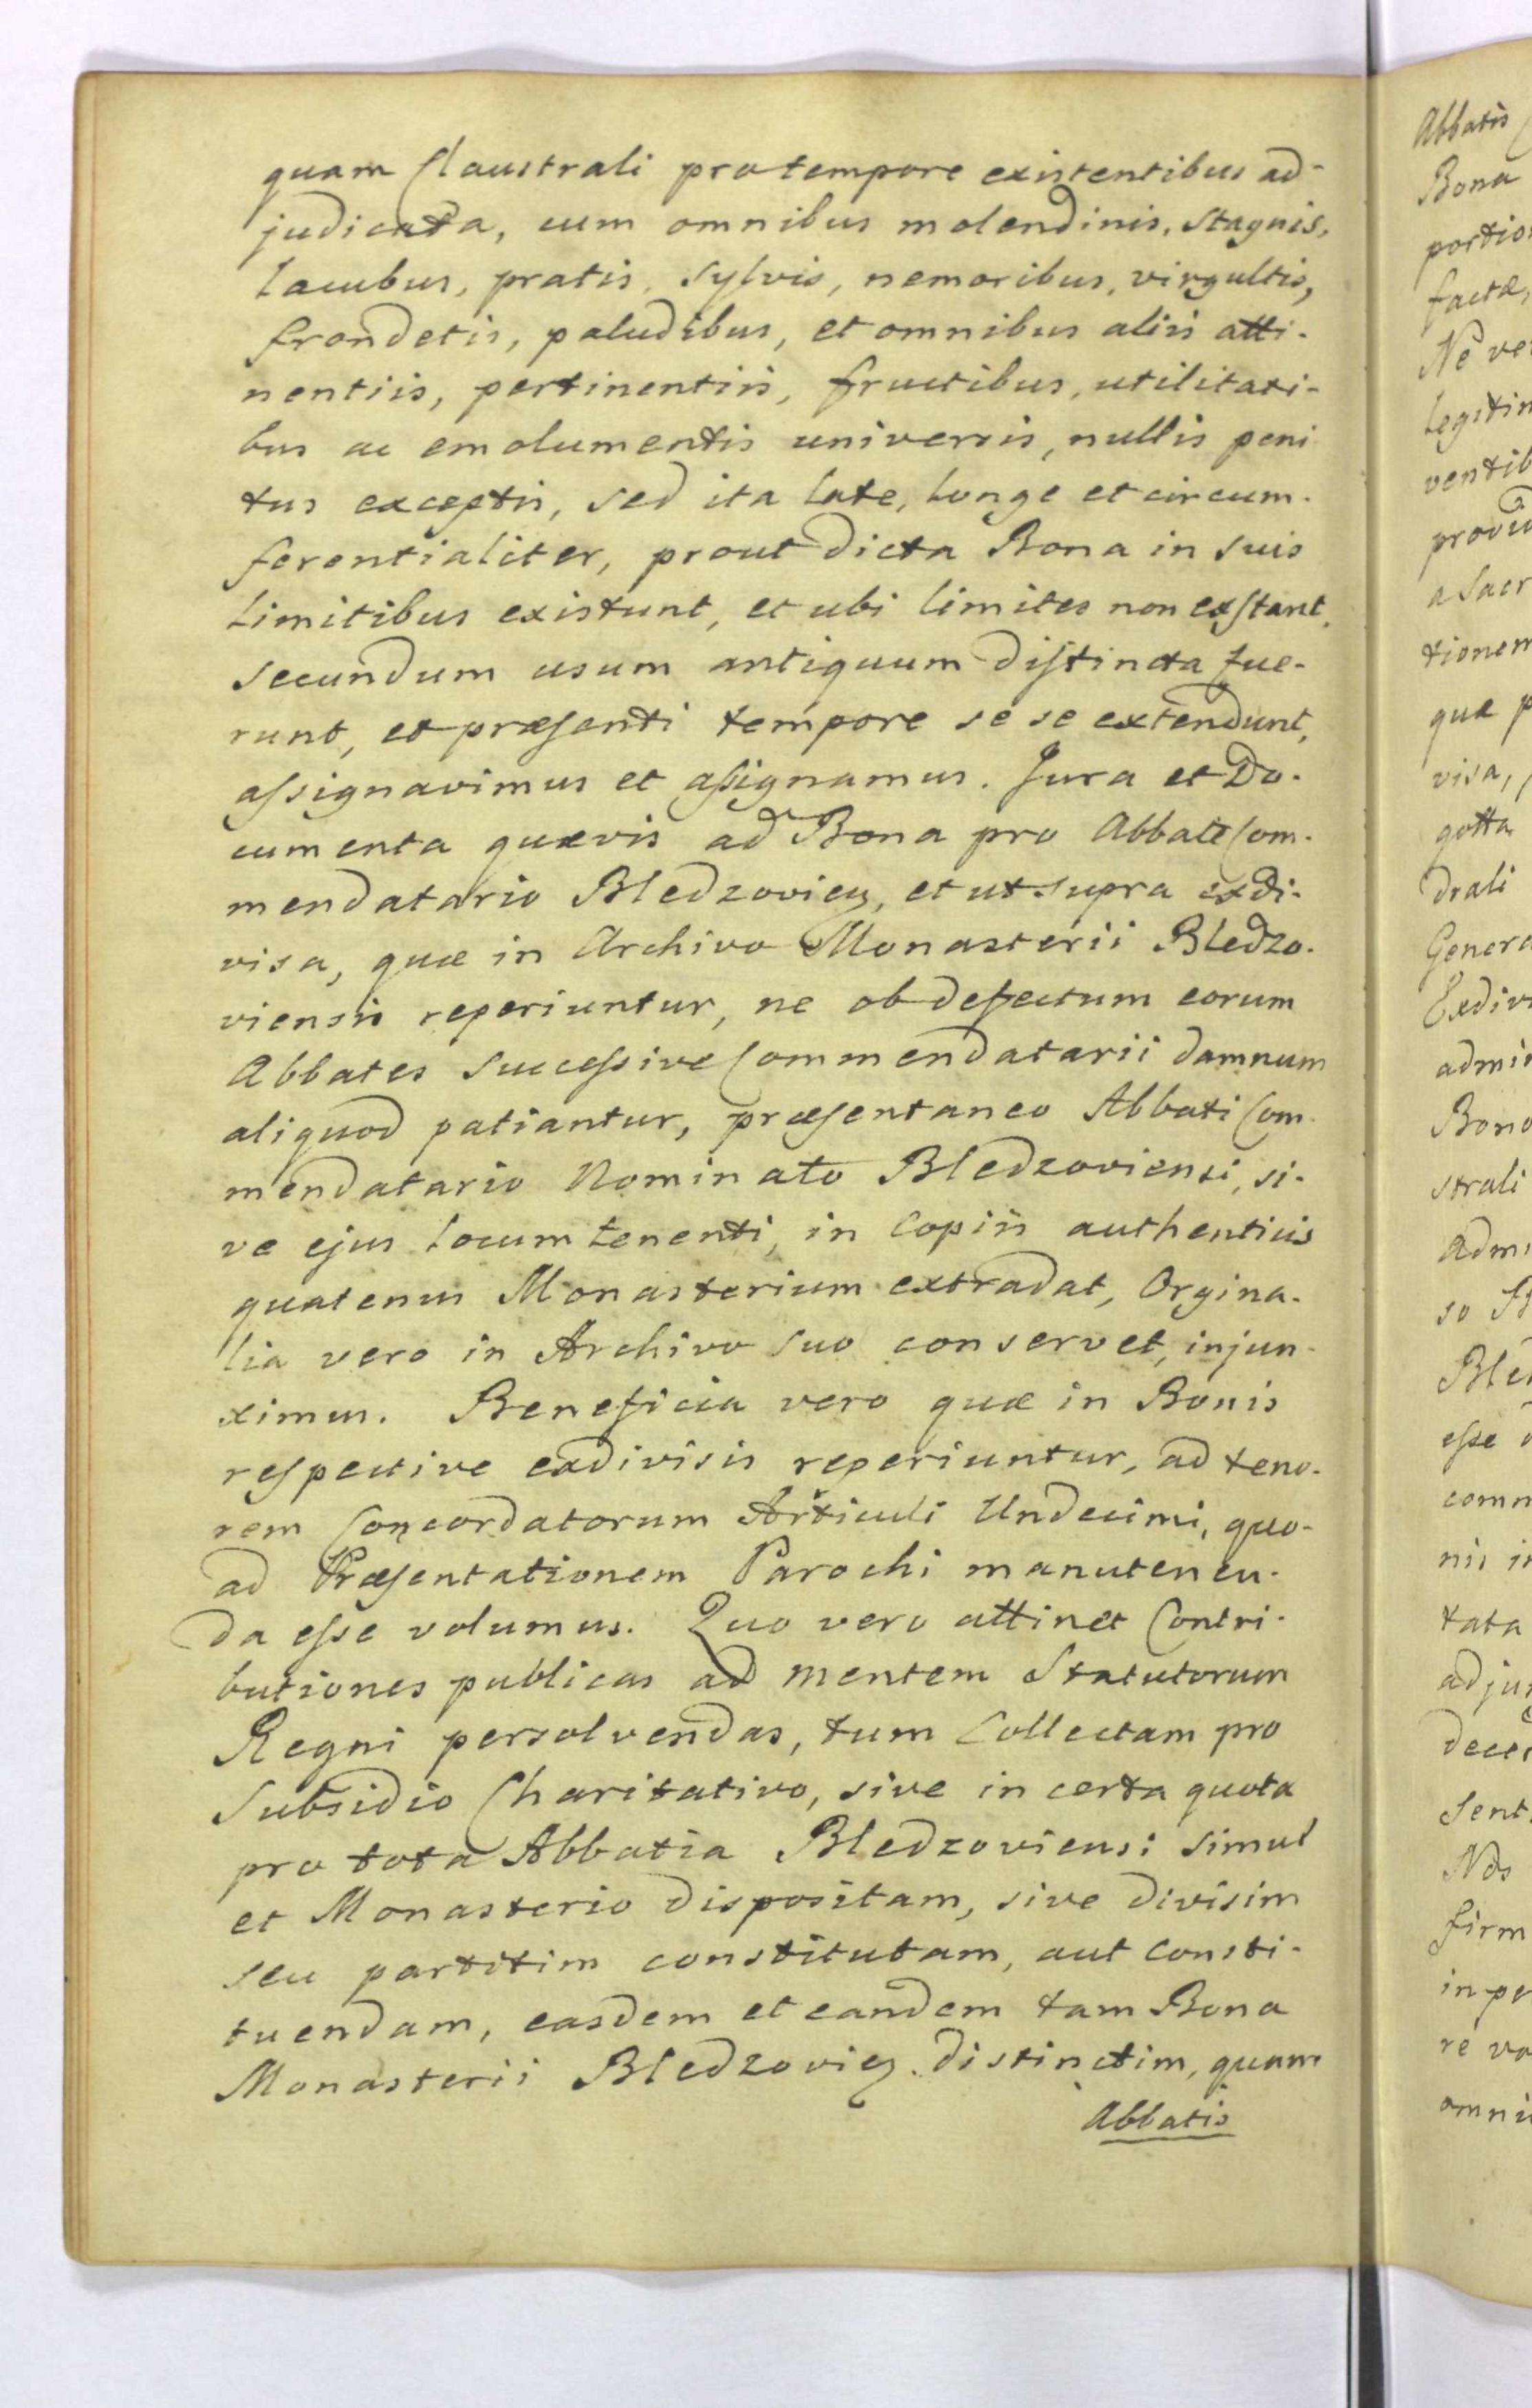 quam Claustrali pro tempore existentibus ad-
judicata, cum omnibus molendinis, Stagnis,
lacubus, pratis, Sylvis, nemoribus, virgultis,
frondetis, paludibus, et omnibus aliis atti-
nentiis, pertinentiis, fructibus, utilitati-
bus ac emolumentis universis, nullis peni
tus exceptis, sed ita late, longe et circum-
ferentialiter, prout dicta Bona in suis
limitibus existunt, et ubi limites non exstant,
secundum usum antiquum distincta fue-
runt, et præsenti tempore se se extendunt,
assignavimus et assignamus. Jura et Do-
cumenta quævis ad Bona pro Abbate Com-
mendatario Bledzovien, et ut supra exdi-
visa, quæ in Archivo Monasterii Bledzo-
viensis reperiuntur, ne ob defectum eorum
Abbates successive Commendatarii damnum
aliquod patiantur, præsentaneo Abbati Com-
mendatario Nominato Bledzoviensi, si-
ve ejus locum tenenti, in Copiis authenticis
quatenus Monasterium extradat, Orgina-
lia vero in Archivo suo conservet, injun-
ximus. Beneficia vero quæ in Bonis
respective exdivisis reperiuntur, ad teno-
rem Concordatorum Articuli Undecimi, quo-
ad Præsentationem Parochi manutenen-
da esse volumus. Quo vero attinet Contri-
butiones publicas ad mentem Statutorum
Regni persolvendas, tum Collectam pro
Subsidio Charitativo, sive in certa quota
pro tota Abbatia Bledzoviensi simul
et Monasterio dispositam, sive divisim
seu partitim constitutam, aut consti-
tuendam, easdem et eandem tam Bona
Monasterii Bledzovien. distinctim, quam
Abbatis
Abbatis
Bona
portio
factæ,
Ne ve
legitim
ventib
a Sacr
tionem
quæ p
visa,
gotta
drali
Genera
Exdivi
admi
Bono
strali
Admi
so
Bled
esse
comm
nis in
tata
adjun
dece
sent
Nos
firm
in pe
re vo
omni